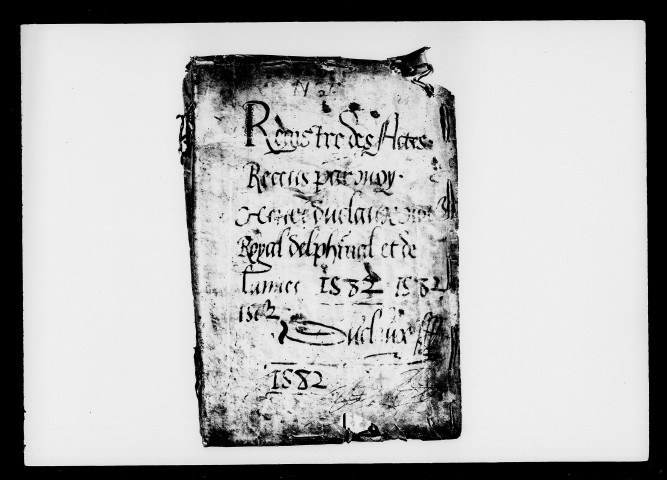 N 2
Registre des Actes
Receus par moy
duclaux
Royal delphinal et de
lannee 1582 1582
1582
Duclaux
1582